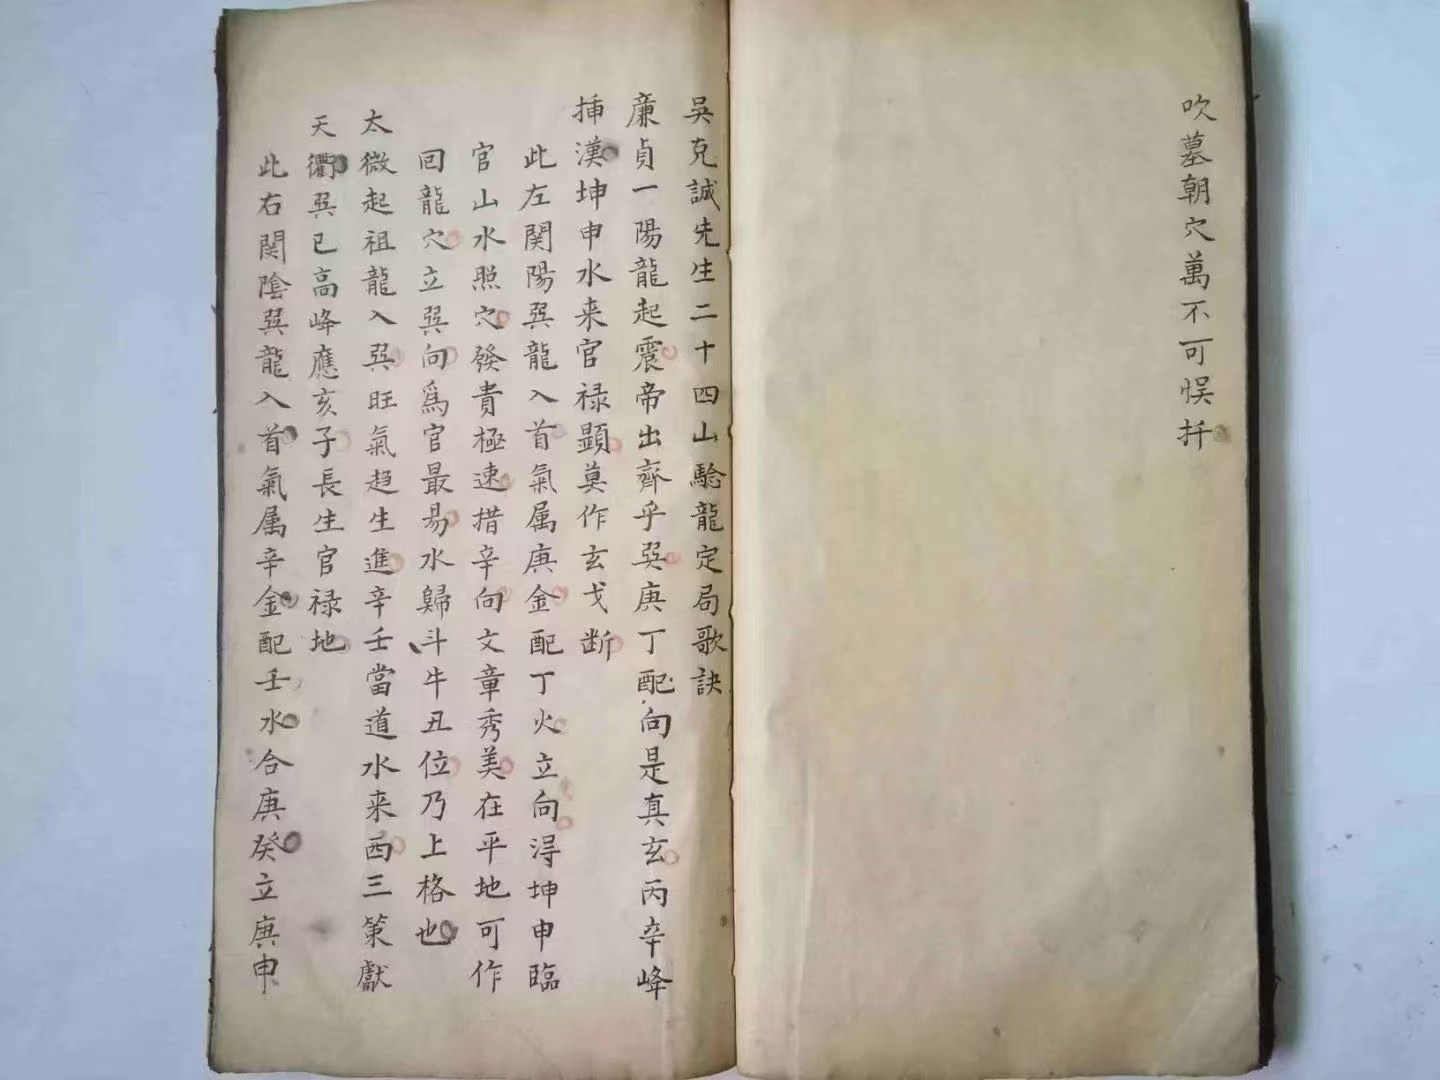 吹墓朝穴萬不可悞扦
吳克誠先生二十四山驗龍定局歌訣
廉貞一陽龍起震帝出齊乎巽庚丁配向是真玄丙辛峰
挿漢坤申水来官禄顕莫作玄戈断
此左関陽巽龍入首氣属庚金配丁火立向淂坤申臨
官山水照穴發貴極速措辛向文章秀美在平地可作
回龍穴立巽向爲官最易水歸斗牛丑位乃上格也
太微起祖龍入巽旺氣趋生進辛壬當道水来西三策獻
天衢巽巳高峰應亥子長生官禄地
此右関陰巽龍入首氣属辛金配壬水合庚癸立庚申